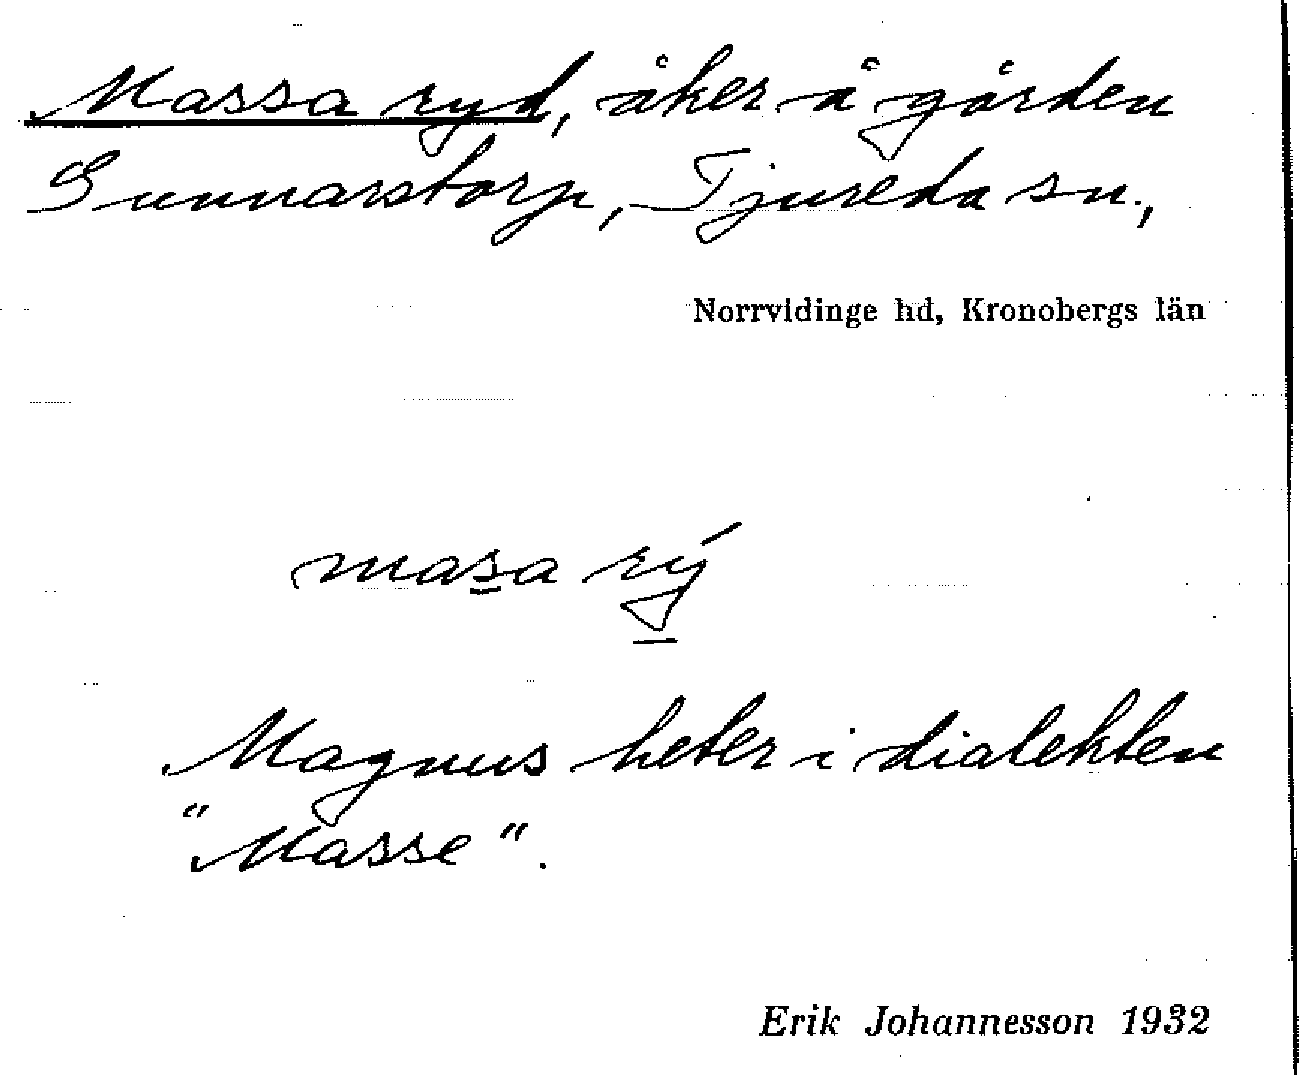 Massa ryd, åker å gården
Gunnarstorp, Tjureda sn.,
Norrvidinge hd, Kronobergs län
mas̲a rý̲
Magnus heter i dialekten
"Masse".
Erik Johannesson 1932